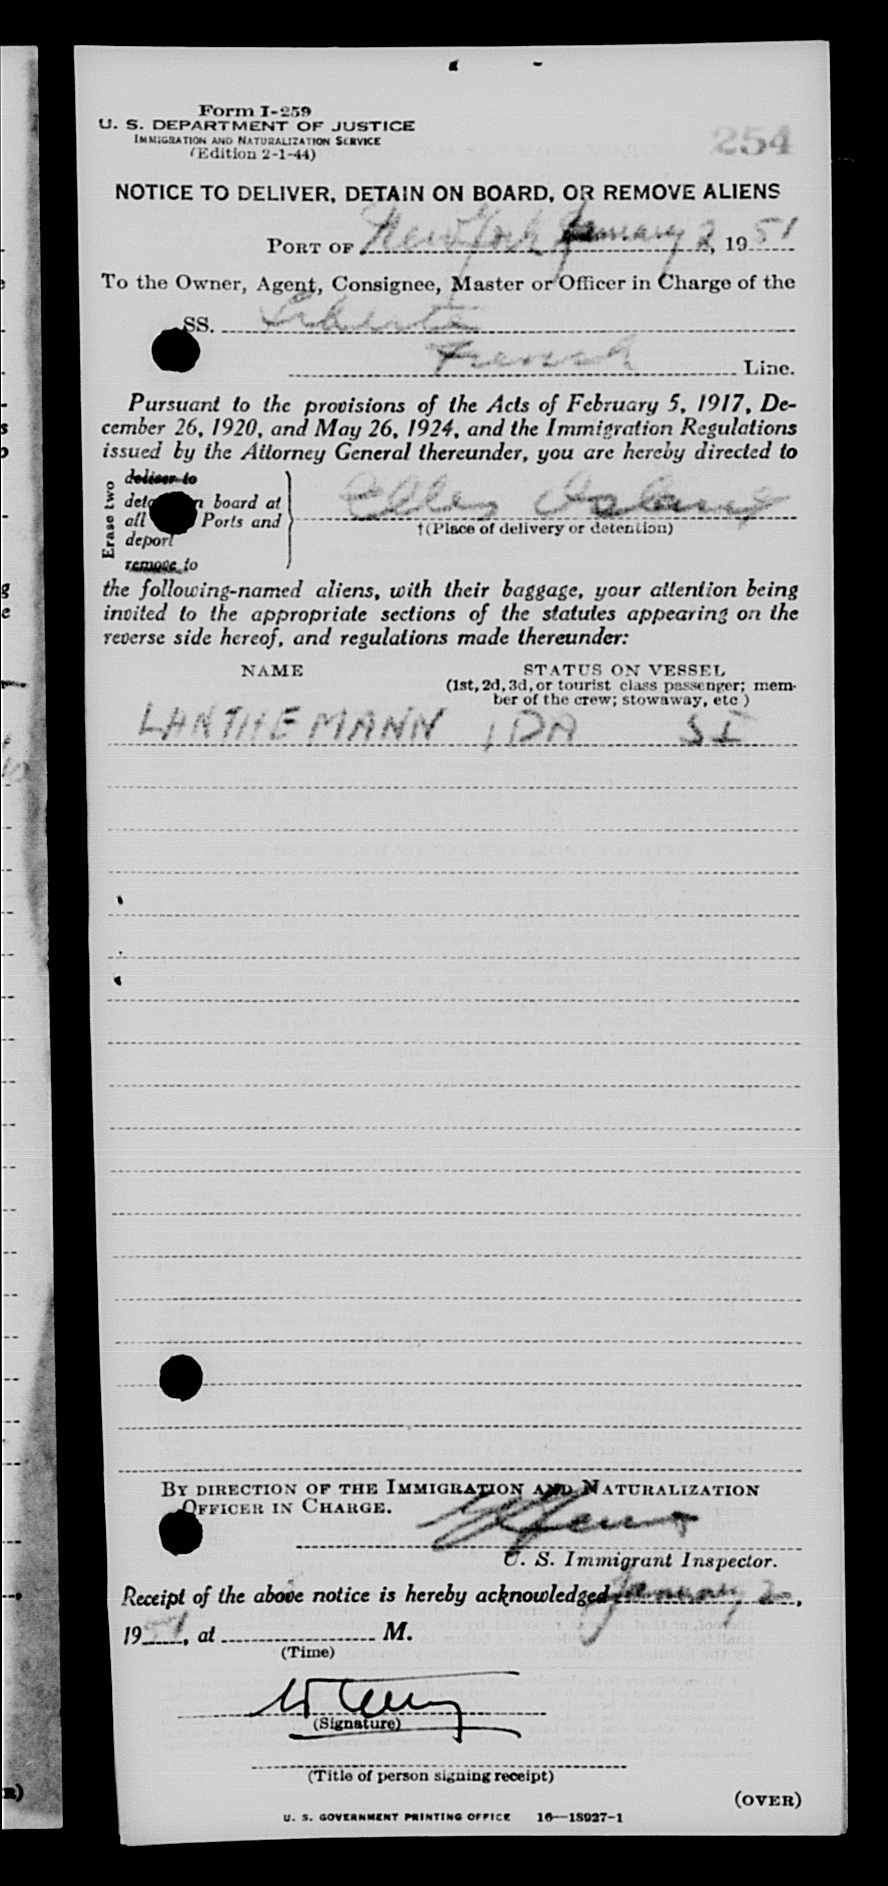 Form I-259
U. S. DEPARTMENT OF JUSTICE
IMMIGRATION AND NATURALIZATION SERVICE
(Edition 2-1-44)
254
NOTICE TO DELIVER, DETAIN ON BOARD, OR REMOVE ALIENS
PORT OF New York January 2, 19 51
To the Owner, Agent, Consignee, Master or Officer in Charge of the
SS. Liberte
French Line.
Pursuant to the provisions of the Acts of February 5, 1917, De-
cember 26, 1920, and May 26, 1924, and the Immigration Regulations
issued by the Attorney General thereunder, you are hereby directed to
Erase two
deliver to
board at
all Ports and
deport
remove to
Ellis Island
†(Place of delivery or detention)
the following-named aliens, with their baggage, your attention being
invited to the appropriate sections of the statutes appearing on the
reverse side hereof, and regulations made thereunder:
NAME STATUS ON VESSEL
(1st, 2d, 3d, or tourist class passenger; mem-
ber of the crew; stowaway, etc )
LANTHEMANN IDA SI
BY DIRECTION OF THE IMMIGRATION AND NATURALIZATION
OFFICER IN CHARGE.
U. S. Immigrant Inspector.
Receipt of the above notice is hereby acknowledged January 2,
19 51, at M.
(Time)
(Signature)
(Title of person signing receipt)
(OVER)
U. S. GOVERNMENT PRINTING OFFICE 16—18927-1